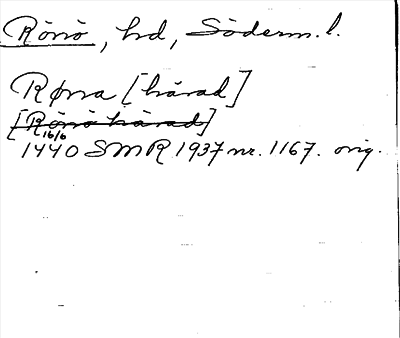 Rönö, hd, Söderm. l.
Røna [härad]
[Rönö härad]
16/6
1440 SMR 1937 nr. 1167. orig.